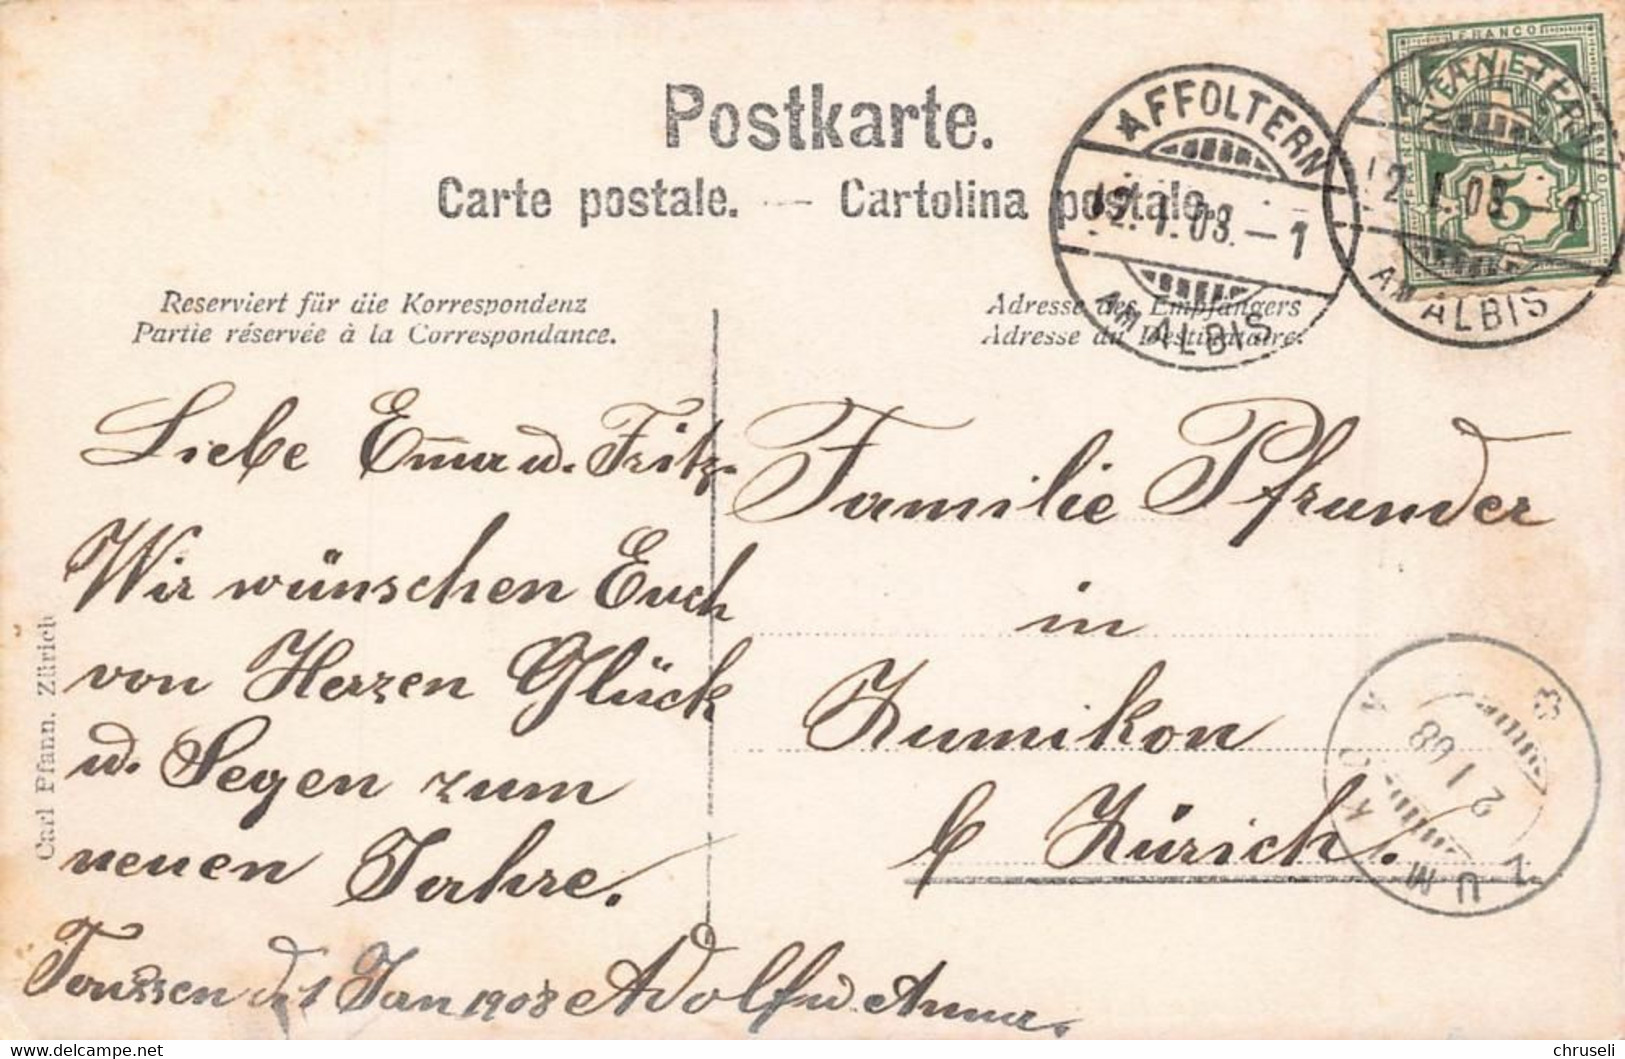 Postkarte.
Carte postale. — Cartolina postale.
Reserviert für die Korrespondenz
Partie réservée à la Correspondance.
Adresse des Empfängers
Adresse du Destinataire.
AFFOLTERN
2.I.08.–1
AM ALBIS
FRANCO
5
2.I.08.–1
AM ALBIS
Liebe Em̅a u. Fritz.
Wir wünschen Euch
von Herzen Glück
u. Segen zum
neuen Jahre.
d. 1 Jan 1908 Adolf u Anna.
Familie Pfrunder
in
Zumikon
b Zürich.
ZUMIKON
2 I 08
Carl Pfann, Zürich
delcampe.net
chruseli